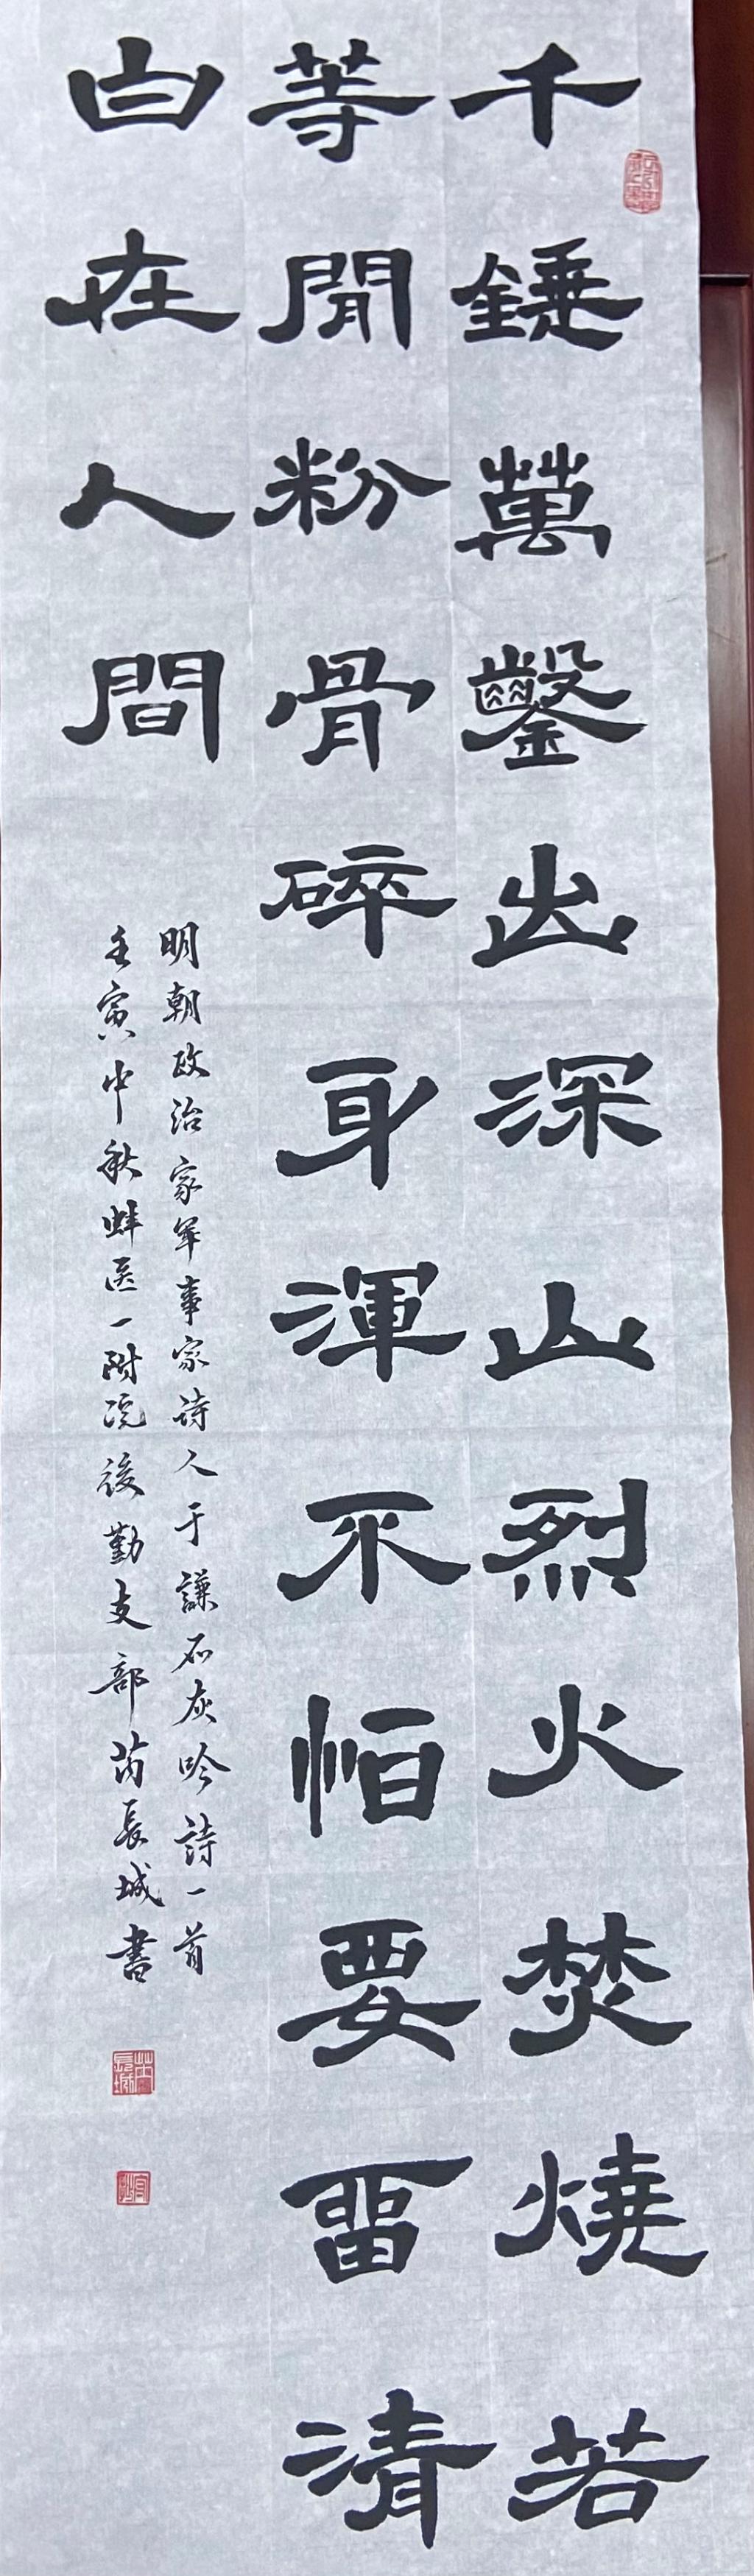 千錘萬鑿出深山烈火焚燒若
等閒粉骨碎身渾不怕要畱清
白在人間
明朝政治家軍事家詩人于謙石灰吟詩一首
壬寅中秋蚌医一附院後勤支部芮長城書